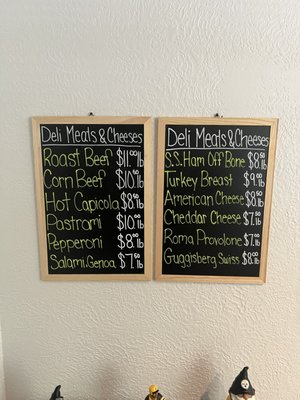 Deli Meats & Cheeses
Roast Beef $11.00 lb
Corn Beef $10.50 lb
Hot Capicola $8.50 lb
Pastrami $10.50 lb
Pepperoni $8.00 lb
Salami, Genoa $7.50 lb
Deli Meats & Cheeses
S.S. Ham Off Bone $8.50 lb
Turkey Breast $9.00 lb
American Cheese $6.50 lb
Cheddar Cheese $7.50 lb
Roma Provolone $7.00 lb
Guggisberg Swiss $8.00 lb